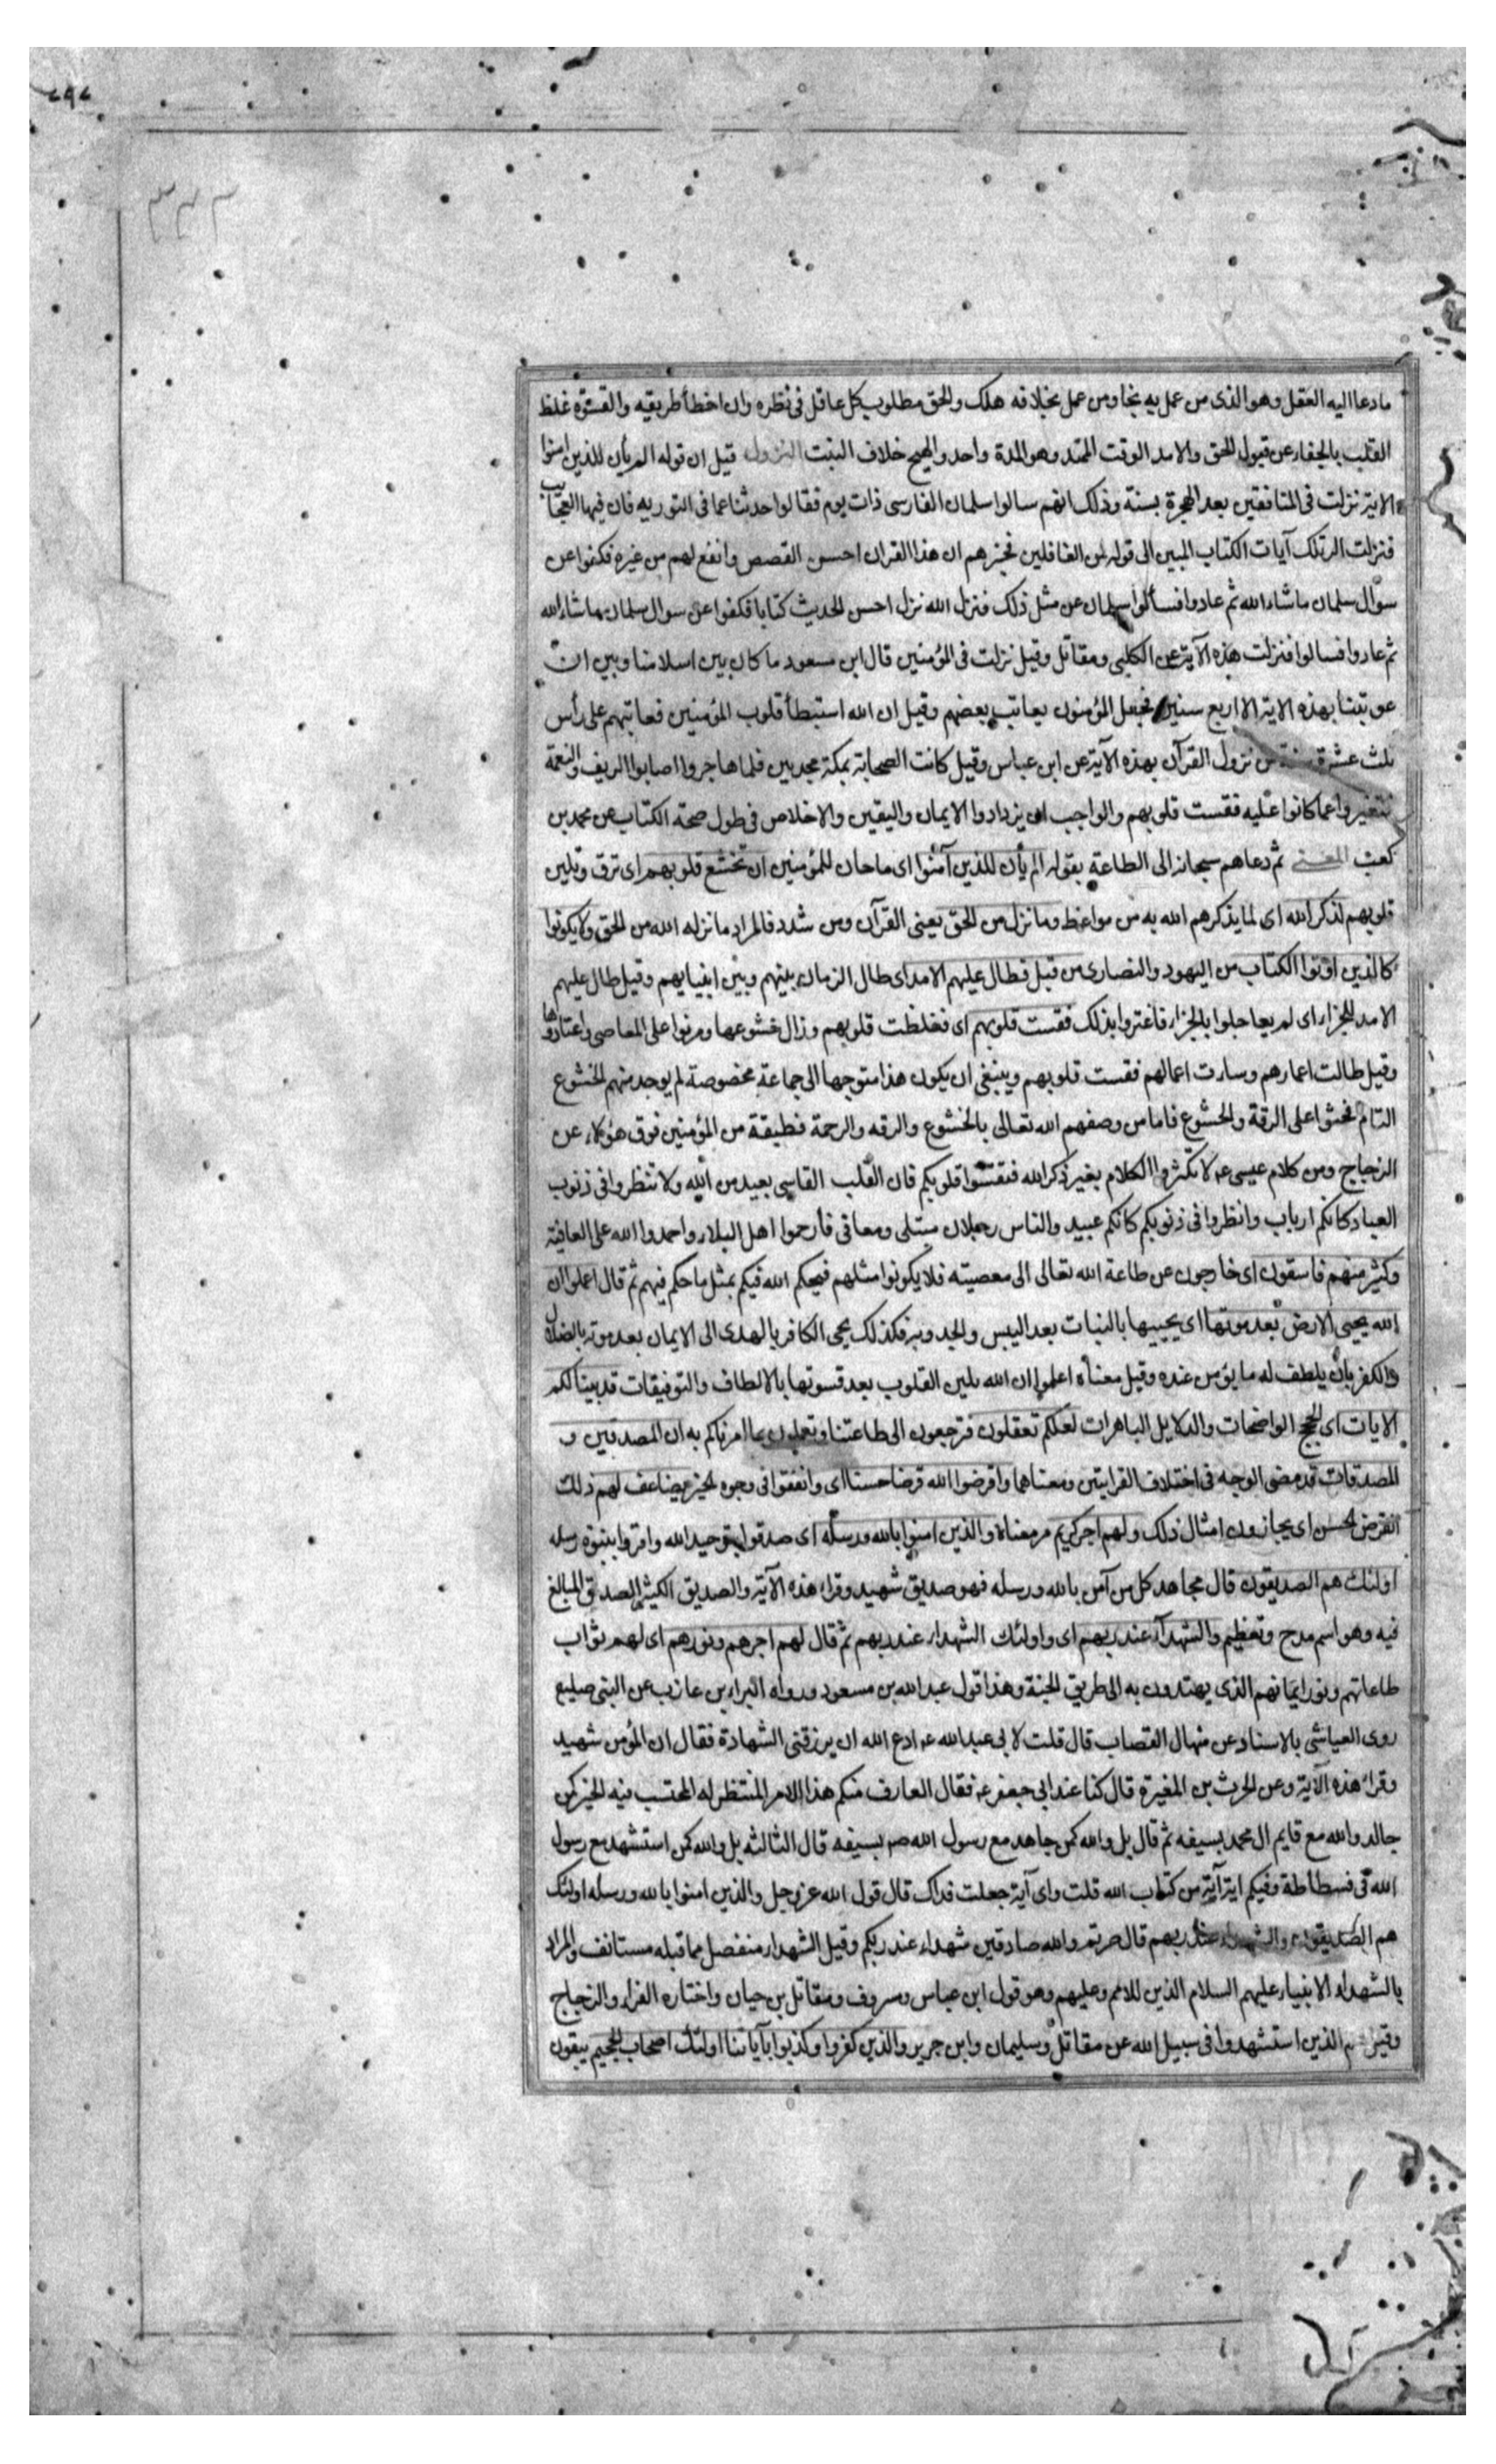 مادعا اليه العقل وهو الذى من عمل به نجا ومن عمل بخلافه هلك والحق مطلوب كل عاقل فى نظره وان اخطأ طريقه والقسوة غلظ
القلب بالجفاء عن قبول الحق والامد الوقت الممتد وهو المدة واحد والهيج خلاف النبت النزول قيل ان قوله الم يأن للذين امنوا
الاية نزلت فى المنافقين بعد الهجرة بسنة وذلك انهم سالوا سلمان الفارسى ذات يوم فقالوا حدثنا عما فى التورية فان فيها العجايب
فنزلت الر تلك آيات الكتاب المبين الى قوله لمن الغافلين فخبرهم ان هذا القران احسن القصص وانفع لهم من غيره فكفوا عن
سؤال سلمان ماشاء الله ثم عادوا فسألوا سلمان عن مثل ذلك فنزل الله نزل احسن الحديث كتابا فكفوا عن سوال سلمان ماشاء الله
ثم عادوا فسالوا فنزلت هذه الآية عن الكلبى ومقاتل وقيل نزلت فى المؤمنين قال ابن مسعود ما كان بين اسلامنا وبين ان
عوتبنا بهذه الاية الا اربع سنين فجعل المؤمنون يعاتب بعضهم وقيل ان الله استبطأ قلوب المؤمنين فعاتبهم على رأس
ثلث عشرة سنة من نزول القرآن بهذه الآية عن ابن عباس وقيل كانت الصحابة بمكة مجدبين فلما هاجروا اصابوا الريف والنعمة
فتغيروا عما كانوا عليه فقست قلوبهم والواجب ان يزدادوا الايمان واليقين والاخلاص فى طول صحبة الكتاب عن محمد بن
كعب المعنى ثم دعاهم سبحانه الى الطاعة بقوله الم يأن للذين آمنوا اى ماحان للمؤمنين ان تخشع قلوبهم اى ترق وتلين
قلوبهم لذكر الله اى لما يذكرهم الله به من مواعظ وما نزل من الحق يعنى القرآن ومن شدد فالمراد مانزله الله من الحق ولا يكونوا
كالذين اوتوا الكتاب من اليهود والنصارى من قبل فطال عليهم الامد اى طال الزمان بينهم وبين انبيايهم وقيل طال عليهم
الامد للجزاء اى لم يعاجلوا بالجزاء فاغتروا بذلك فقست قلوبهم اى فغلظت قلوبهم وزال خشوعها ومرنوا على المعاصى واعتادوها
وقيل طالت اعمارهم وسارت اعمالهم فقست قلوبهم وينبغى ان يكون هذا متوجها الى جماعة مخصوصة لم يوجد منهم الخشوع
التام فحثوا على الرقة والخشوع فاما من وصفهم الله تعالى بالخشوع والرقه والرحمة فطبقة من المؤمنين فوق هؤلاء عن
الزجاج ومن كلام عيسى عه لا تكثروا الكلام بغير ذكر الله فتقسوا قلوبكم فان القلب القاسى بعيد من الله ولا تنظروا فى ذنوب
العباد كانكم ارباب وانظروا فى ذنوبكم كانكم عبيد والناس رجلان مبتلى ومعافى فأرحموا اهل البلاء واحمدوا الله على العافية
وكثير منهم فاسقون اى خارجون عن طاعة الله تعالى الى معصيته فلا يكونوا مثلهم فيحكم الله فيكم بمثل ماحكم فيهم ثم قال اعلموا ان
الله يحيى الارض بعد موتها اى يحييها بالنبات بعد اليبس والجدوبة فكذلك يحى الكافر بالهدى الى الايمان بعد موته بالضلال
والكفر بان يلطف له مايؤمن عنده وقيل معناه اعلموا ان الله يلين القلوب بعد قسوتها بالالطاف والتوفيقات قد بينا لكم
الايات اى الحجج الواضحات والدلايل الباهرات لعلكم تعقلون فترجعون الى طاعتنا وتعملون بما امرناكم به ان المصدقين و
المصدقات قد مضى الوجه فى اختلاف القرايتين ومعناهما واقرضوا الله قرضا حسنا اى وانفقوا فى وجوه الخير يضاعف لهم ذلك
القرض الحسن اى يجازون امثال ذلك ولهم اجر كريم مر معناه والذين امنوا بالله ورسله اى صدقوا بتوحيد الله واقروا بنبوة رسله
اولئك هم الصديقون قال مجاهد كل من آمن بالله ورسله فهو صديق شهيد وقراء هذه الآية والصديق الكثير الصدق المبالغ
فيه وهو اسم مدح وتعظيم والشهدآء عند ربهم اى واولئك الشهداء عند ربهم ثم قال لهم اجرهم ونورهم اى لهم ثواب
طاعاتهم ونور ايمانهم الذى يهتدون به الى طريق الجنة وهذا قول عبد الله بن مسعود ورواه البراء بن عازب عن النبى صليع
روى العياشى بالاسناد عن منهال القصاب قال قلت لابى عبدالله عه ادع الله ان يرزقنى الشهادة فقال ان المؤمن شهيد
وقراء هذه الآية وعن الحرث بن المغيرة قال كنا عند ابى جعفر عه فقال العارف منكم هذا الامر المنتظر له المحتسب فيه الخير كمن
جالد والله مع قايم ال محمد بسيفه ثم قال بل والله كمن جاهد مع رسول الله صه بسيفه قال الثالثه بل والله كمن استشهد مع رسول
الله فى فسطاطه وفيكم اية آية من كتاب الله قلت واى آية جعلت فداك قال قول الله عزوجل والذين امنوا بالله ورسله اولئك
هم الصديقون والشهداء عند ربهم قال صرتم والله صادقين شهداء عند ربكم وقيل الشهداء منفصل مما قبله مستانف والمراد
بالشهداء الانبياء عليهم السلام الذين للامم وعليهم وهو قول ابن عباس ومسروف ومقاتل بن حيان واختاره الفراء والزجاج
وقيل هم الذين استشهدوا فى سبيل الله عن مقاتل وسليمان وابن جرير والذين كفروا وكذبوا بآياتنا اولئك اصحاب الجحيم يبقون